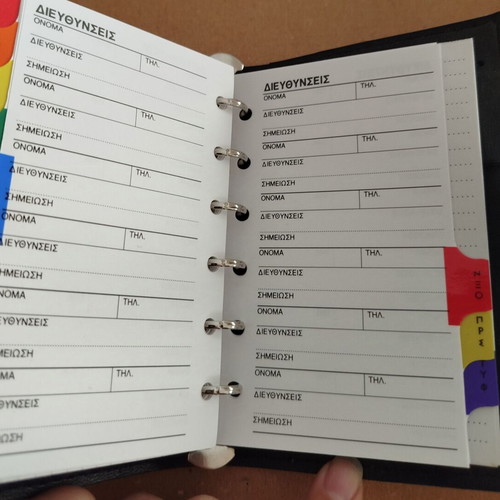 ΔΙΕΥΘΥΝΣΕΙΣ
ΟΝΟΜΑ ΤΗΛ.
ΔΙΕΥΘΥΝΣΕΙΣ
ΣΗΜΕΙΩΣΗ
ΟΝΟΜΑ ΤΗΛ.
ΔΙΕΥΘΥΝΣΕΙΣ
ΣΗΜΕΙΩΣΗ
ΟΝΟΜΑ ΤΗΛ.
ΔΙΕΥΘΥΝΣΕΙΣ
ΣΗΜΕΙΩΣΗ
ΟΝΟΜΑ ΤΗΛ.
ΙΕΥΘΥΝΣΕΙΣ
ΗΜΕΙΩΣΗ
ΝΟΜΑ ΤΗΛ.
ΕΥΘΥΝΣΕΙΣ
ΜΕΙΩΣΗ
ΜΑ ΤΗΛ.
ΘΥΝΣΕΙΣ
ΩΣΗ
ΔΙΕΥΘΥΝΣΕΙΣ
ΟΝΟΜΑ ΤΗΛ.
ΔΙΕΥΘΥΝΣΕΙΣ
ΣΗΜΕΙΩΣΗ
ΟΝΟΜΑ ΤΗΛ.
ΔΙΕΥΘΥΝΣΕΙΣ
ΣΗΜΕΙΩΣΗ
ΟΝΟΜΑ ΤΗΛ.
ΔΙΕΥΘΥΝΣΕΙΣ
ΣΗΜΕΙΩΣΗ
ΟΝΟΜΑ ΤΗΛ.
ΔΙΕΥΘΥΝΣΕΙΣ
ΣΗΜΕΙΩΣΗ
ΟΝΟΜΑ ΤΗΛ.
ΔΙΕΥΘΥΝΣΕΙΣ
ΣΗΜΕΙΩΣΗ
ΟΝΟΜΑ ΤΗΛ.
ΔΙΕΥΘΥΝΣΕΙΣ
ΣΗΜΕΙΩΣΗ
Ν Ξ Ο
Π Ρ Σ
Τ Υ Φ